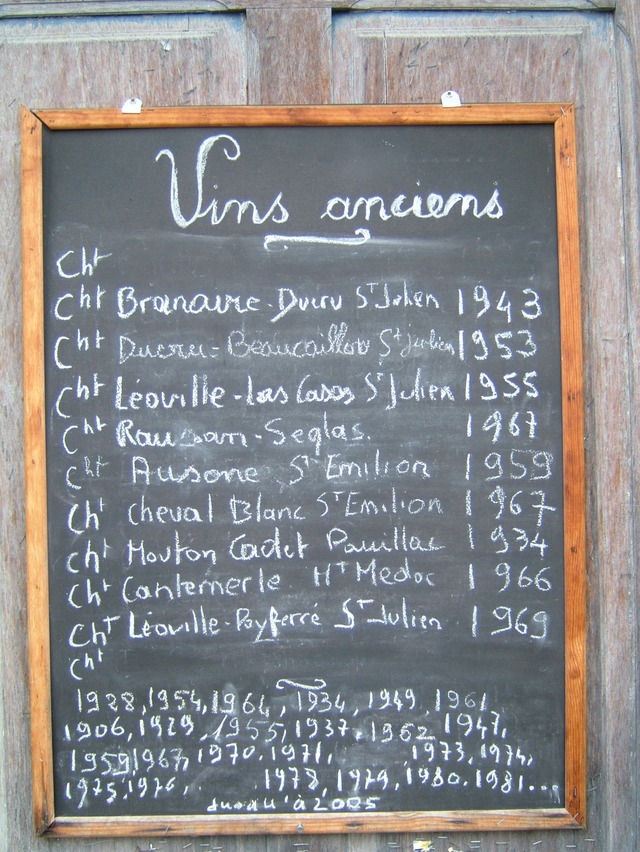 Vins anciens
Cht
Cht Branaire-Ducru St Julien 1943
Cht Ducru-Beaucaillou St Julien 1953
Cht Léoville-Las Cases St Julien 1955
Cht Rausan-Seglas. 1967
Cht Ausone St Emilion 1959
Cht Cheval Blanc St Emilion 1967
Cht Mouton Cadet Pauillac 1934
Cht Cantemerle Ht Medoc 1966
Cht Léoville-Poyferré St Julien 1969
Cht
1928, 1954, 1964, 1934, 1949, 1961
1906, 1929, 1955, 1937, 1962 1947,
1959, 1967, 1970, 1971, 1973, 1974,
1975, 1976, .. 1978, 1979, 1980, 1981...
Jusqu'à 2005